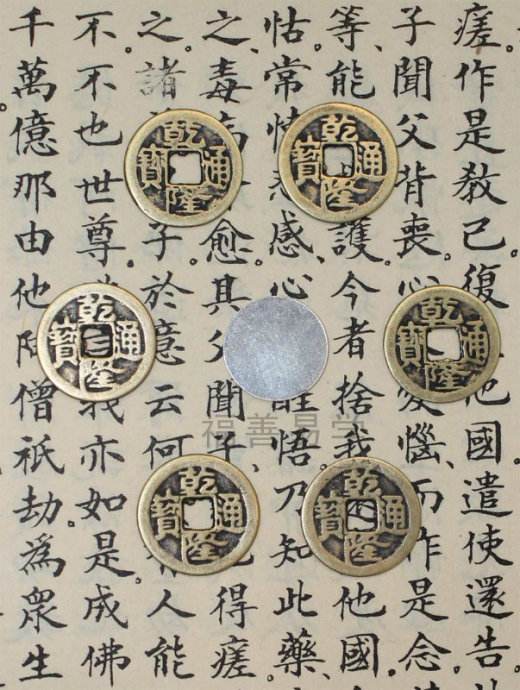 瘥。作是教已復他國遣使還告
子聞父背喪。心憂惱。而作是念。
等、能護今者捨我他國
怙。常悲感。心醒悟。乃知此藥、
之、毒愈。其父聞子、得瘥
之。諸子。於意云何人能
不。不也世尊。我亦如是。成佛
千萬億那由他阿僧祇劫。爲衆生
乾隆通寶
乾隆通寶
乾隆通寶
乾隆通寶
乾隆通寶
乾隆通寶
福善易学